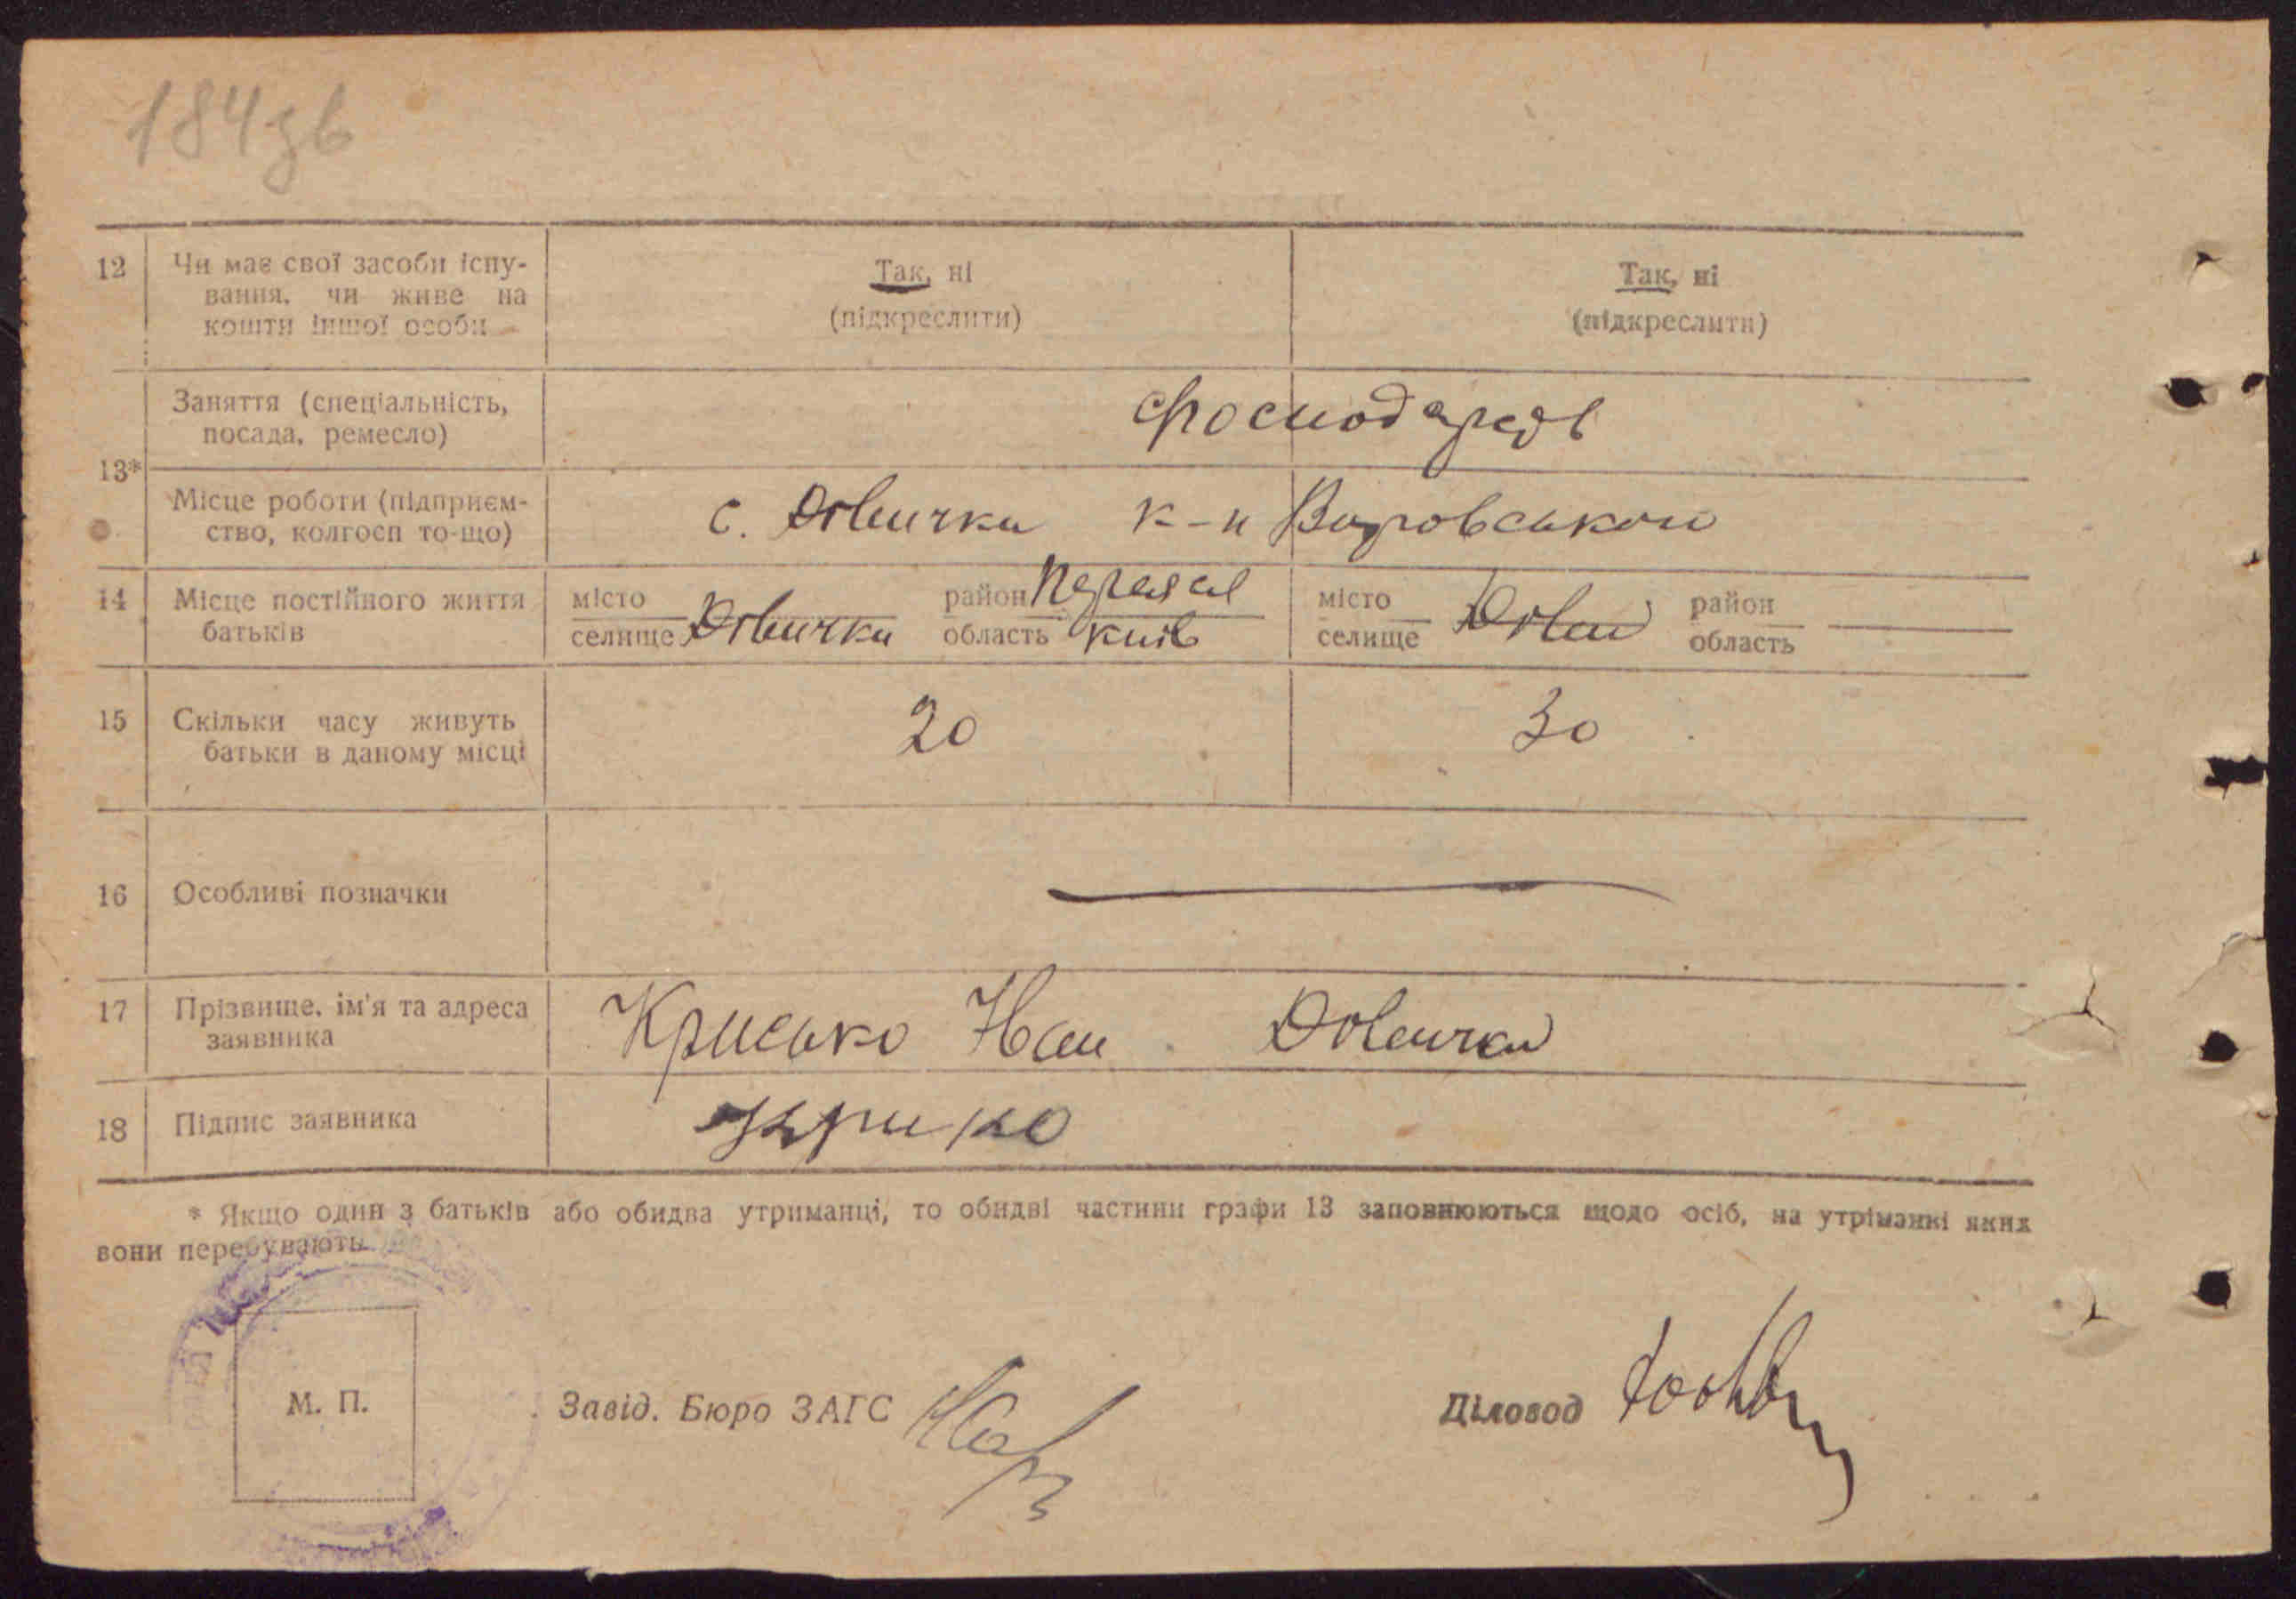 184зв
12 Чи має свої засоби існу-
вання, чи живе на
кошти іншої особи
Так, ні
(підкреслити)
Так, ні
(підкреслити)
13*
Заняття (спеціальність,
посада, ремесло)
Місце роботи (підприєм-
ство, колгосп то-що)
с. Дівички к-п Воровського
14 Місце постійного життя
батьків
місто
селище Дівички
район Переяслав
область Київ
місто
селище Дівич
район
область
15 Скільки часу живуть
батьки в даному місці
20
30
16 Особливі позначки
17 Прізвище, ім'я та адреса
заявника
Крисько Іван Дівички
18 Підпис заявника
Крисько
* Якщо один з батьків або обидва утриманці, то обидві частини графи 13 заповнюються щодо осіб, на утріманні яких
вони перебувають
М. П.
Завід. Бюро ЗАГС
Діловод